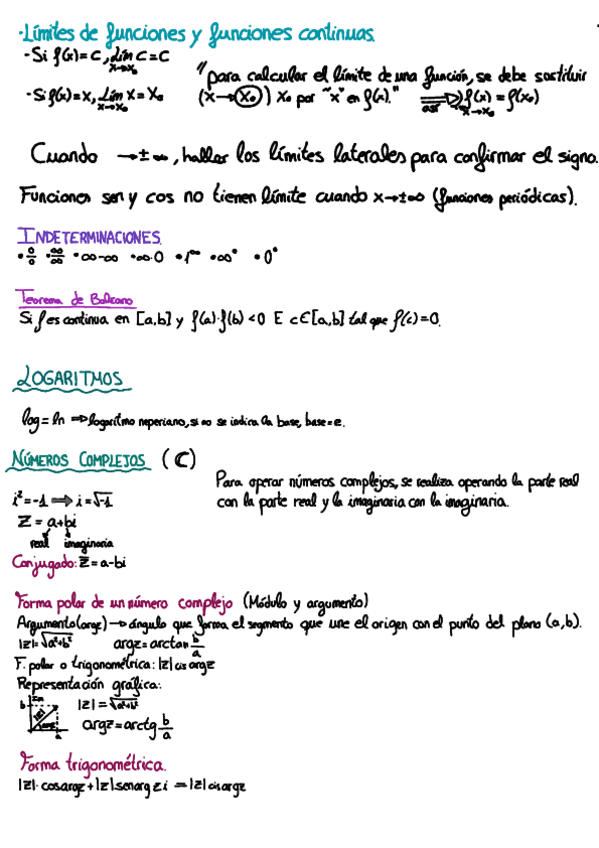 ·Límites de funciones y funciones continuas.
·Si f(x)=C, lim C=C
x→x₀
"para calcular el límite de una función, se debe sustituir
·Si f(x)=x, lim x=x₀ (x→x₀) x₀ por "x" en f(x)." ⟹ f(x) = f(x₀)
x→x₀ así x→x₀
Cuando →±∞, hallar los límites laterales para confirmar el signo.
Funciones sen y cos no tienen límite cuando x→±∞ (funciones periódicas).
INDETERMINACIONES.
·0/0 ·∞/∞ ·∞-∞ ·∞·0 ·1^∞ ·∞⁰ ·0⁰
Teorema de Bolzano
Si f es continua en [a,b] y f(a)·f(b)<0 E c∈[a,b] tal que f(c)=0.
LOGARITMOS
log=ln ⟹logaritmo neperiano, si no se indica la base, base=e.
NÚMEROS COMPLEJOS (C)
Para operar números complejos, se realiza operando la parte real
con la parte real y la imaginaria con la imaginaria.
i²=-1 ⟹ i=√-1
Z = a+bi
real imaginaria
Conjugado: z̄=a-bi
Forma polar de un número complejo (Módulo y argumento)
Argumento(argz)→ángulo que forma el segmento que une el origen con el punto del plano (a,b).
|z|=√a²+b² argz=arctan b/a
F. polar o trigonométrica: |z| cis argz
Representación gráfica:
b |z| = √a²+b²
argz=arctg b/a
a
Forma trigonométrica.
|z|·cosargz+|z|senargz i ⟹|z|cisargz